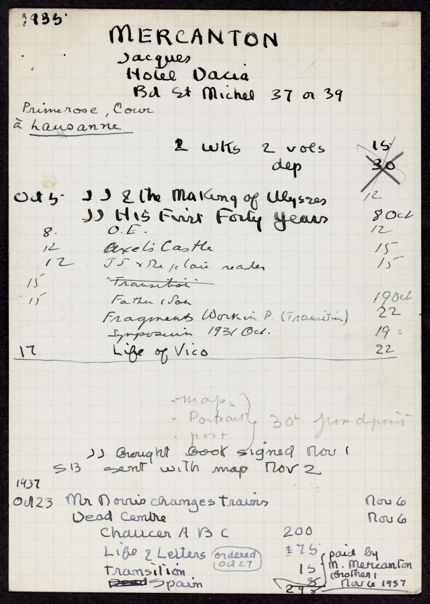 1935
MERCANTON
Jacques
Hotel Dacia
Bd St Michel 37 or 39
Primerose, Cour
à Lausanne
2 wks 2 vols 15
dep 30
Oct 5 JJ & the Making of Ulysses 12
JJ His First Forty Years 8 Oct
8. O.E. 12
12 Axel's Castle 15
12 JJ & the plain reader 15
15 Transition
15 Father & Son 19 Oct
Fragments Work in P. (Transition) 22
Symposium 1931 Oct. 19
17 Life of Vico 22
map
Portrait 30 from deposit
post
JJ brought book signed Nov 1
SB sent with map Nov 2
1937
Oct 23 Mr Norris changes trains Nov 6
Dead Centre Nov 6
Chaucer A B C 200
Life & Letters ordered Oct 27 75 paid by
transition 15 M. Mercanton
Dead Spain 8 (brother)
298 Nov 6 1937